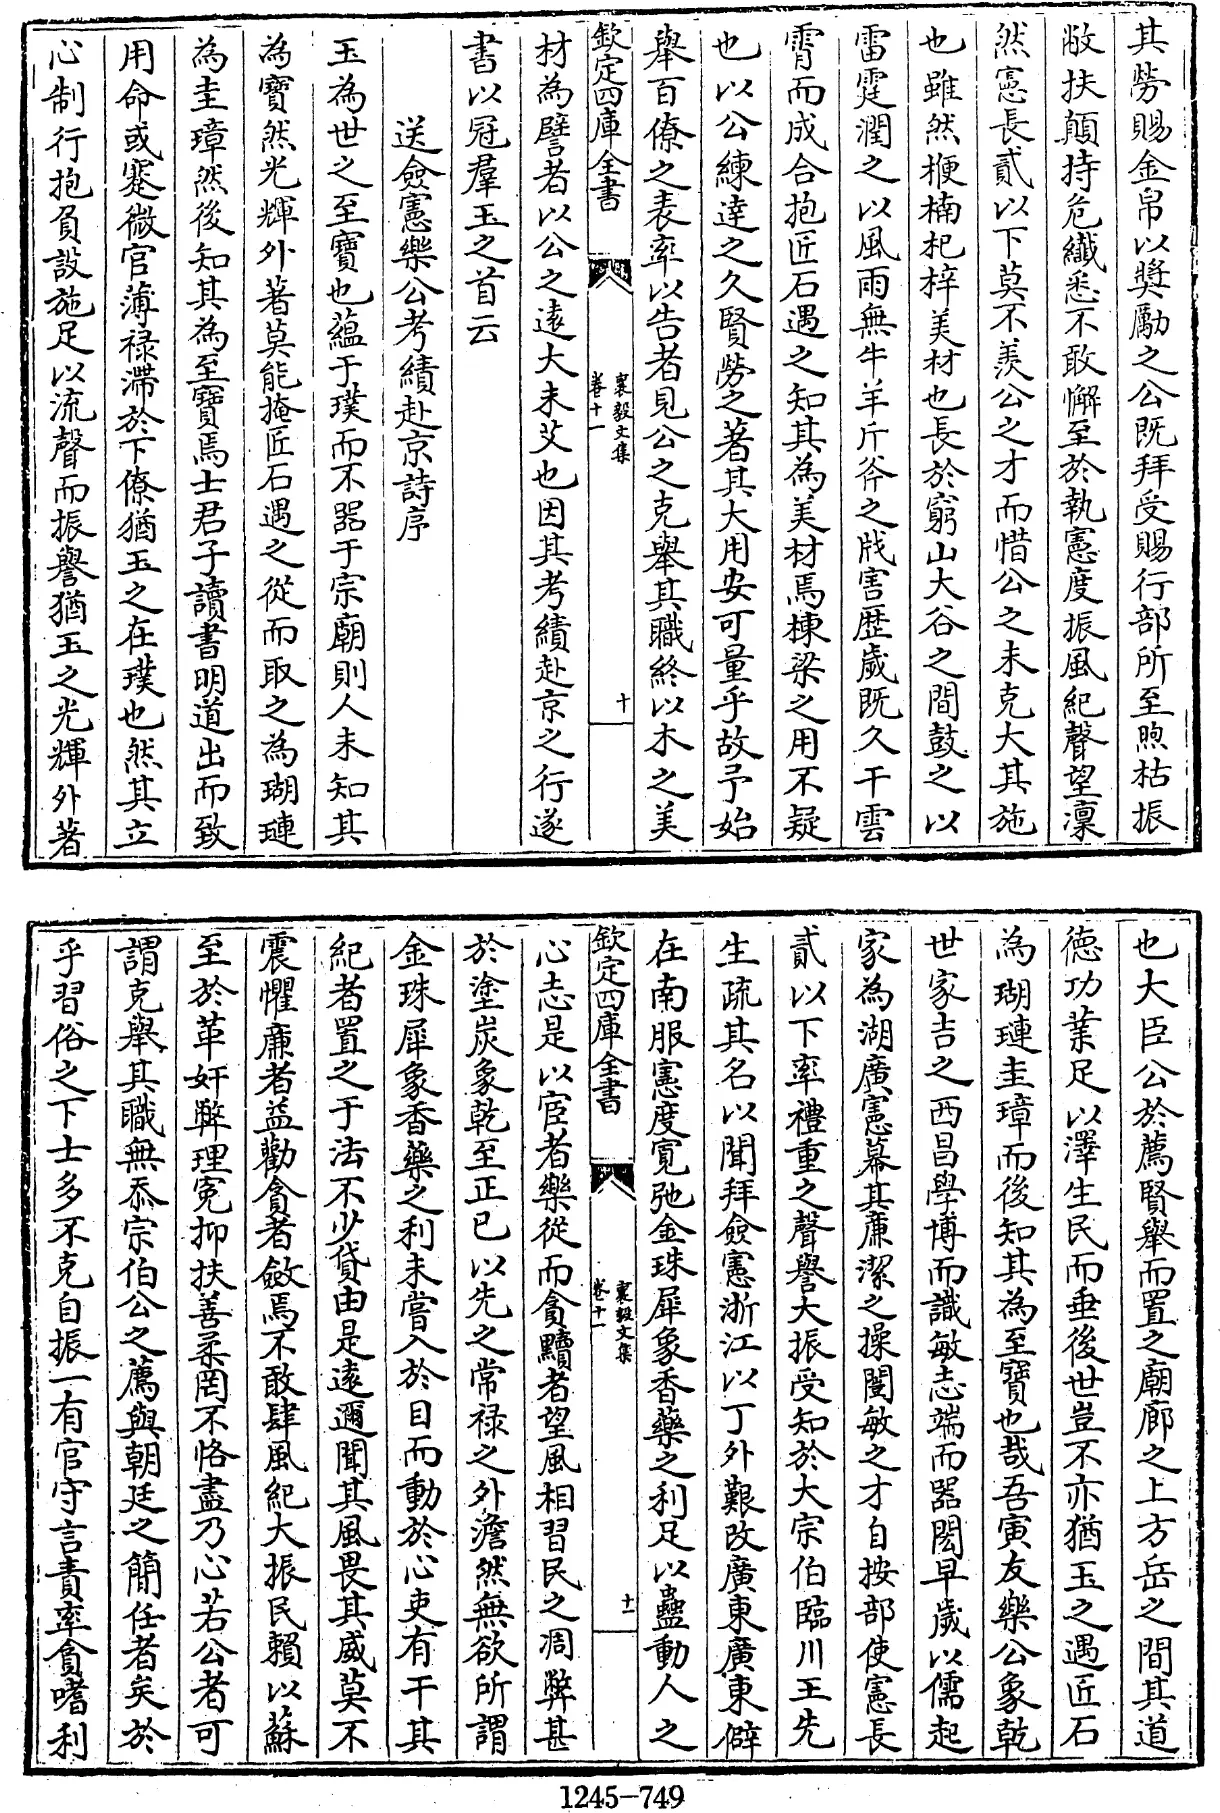 其勞賜金帛以奬勵之公既拜受賜行部所至煦枯振
敝扶顛持危纎悉不敢懈至於執憲度振風紀聲望凜
然憲長貳以下莫不羨公之才而惜公之未克大其施
也雖然楩楠杞梓美材也長於窮山大谷之間鼓之以
雷霆潤之以風雨無牛羊斤斧之戕害歴歲既久干雲
霄而成合抱匠石遇之知其為美材焉棟梁之用不疑
也以公練達之久賢勞之著其大用安可量乎故予始
舉百僚之表率以告者見公之克舉其職終以木之美
欽定四庫全書
襄毅文集
卷十一
十
材為譬者以公之逺大未艾也因其考績赴京之行遂
書以冠羣玉之首云
送僉憲樂公考績赴京詩序
玉為世之至寳也蘊于璞而不器于宗廟則人未知其
為寳然光輝外著莫能掩匠石遇之從而取之為瑚璉
為圭璋然後知其為至寳焉士君子讀書明道出而致
用命或蹇微官薄禄滯於下僚猶玉之在璞也然其立
心制行抱負設施足以流聲而振譽猶玉之光輝外著
也大臣公於薦賢舉而置之廟廊之上方岳之間其道
德功業足以澤生民而垂後世豈不亦猶玉之遇匠石
為瑚璉圭璋而後知其為至寳也哉吾寅友樂公象乾
世家吉之西昌學博而識敏志端而器閎早歲以儒起
家為湖廣憲幕其亷潔之操閩敏之才自按部使憲長
貳以下率禮重之聲譽大振受知於大宗伯臨川王先
生疏其名以聞拜僉憲浙江以丁外艱改廣東廣東僻
在南服憲度寛弛金珠犀象香藥之利足以蠱動人之
欽定四庫全書
襄毅文集
卷十一
十一
心志是以宦者樂從而貪黷者望風相習民之凋弊甚
於塗炭象乾至正已以先之常禄之外澹然無欲所謂
金珠犀象香藥之利未嘗入於目而動於心吏有干其
紀者置之于法不少貸由是逺邇聞其風畏其威莫不
震懼亷者益勸貪者斂焉不敢肆風紀大振民賴以蘇
至於革奸弊理冤抑扶善柔罔不恪盡乃心若公者可
謂克舉其職無忝宗伯公之薦與朝廷之簡任者矣於
乎習俗之下士多不克自振一有官守言責率貪嗜利
1245-749